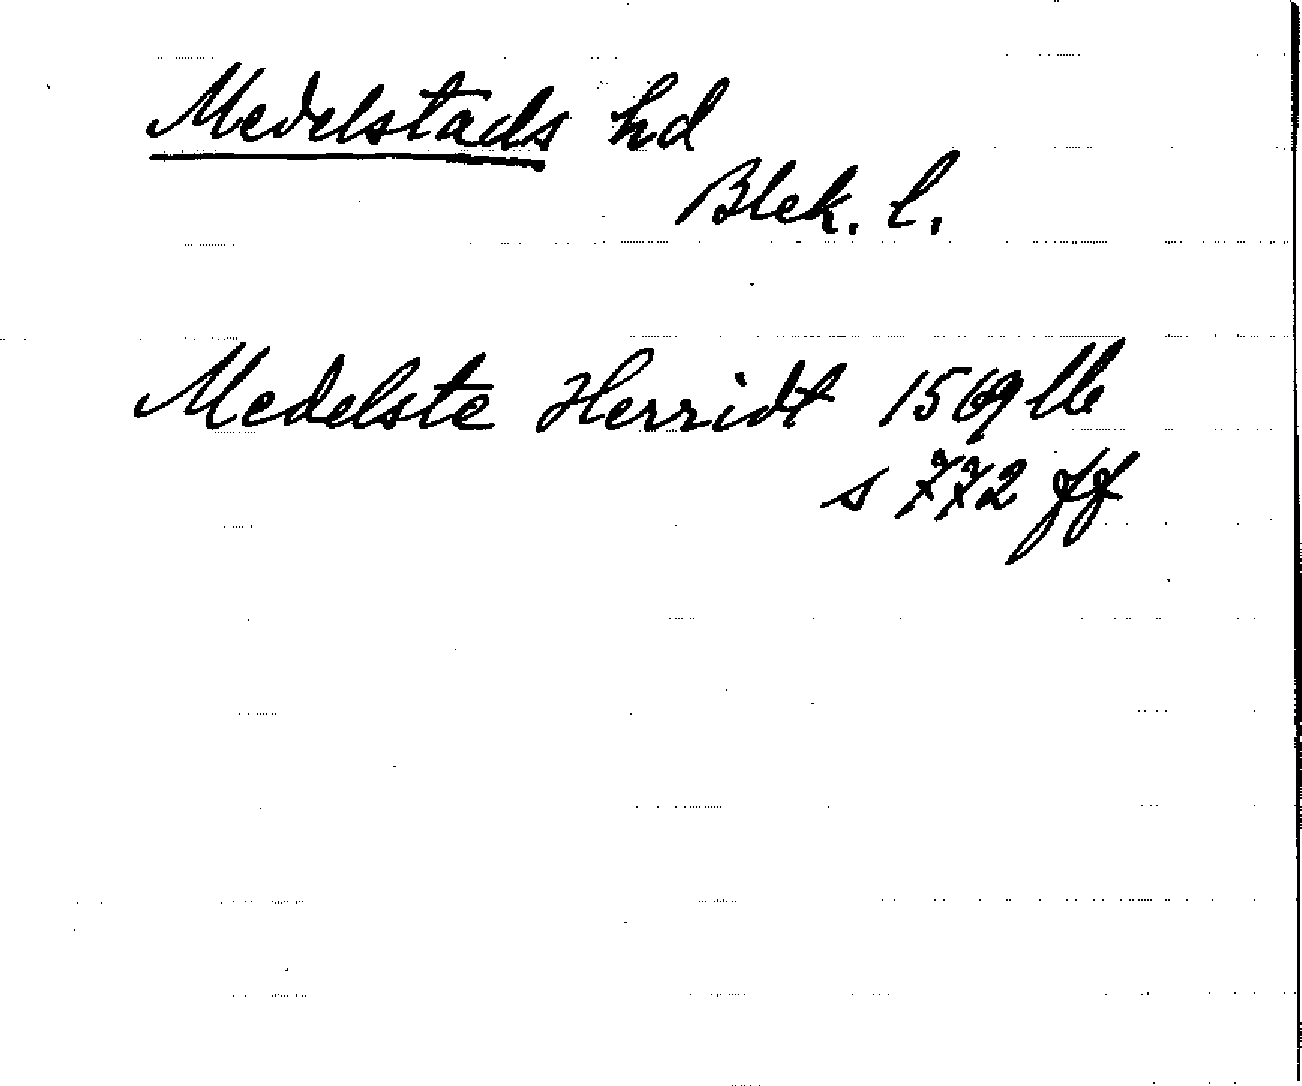 Medelstads hd
Blek. l.
Medelste Herridt 1569 lb
s 772 ff